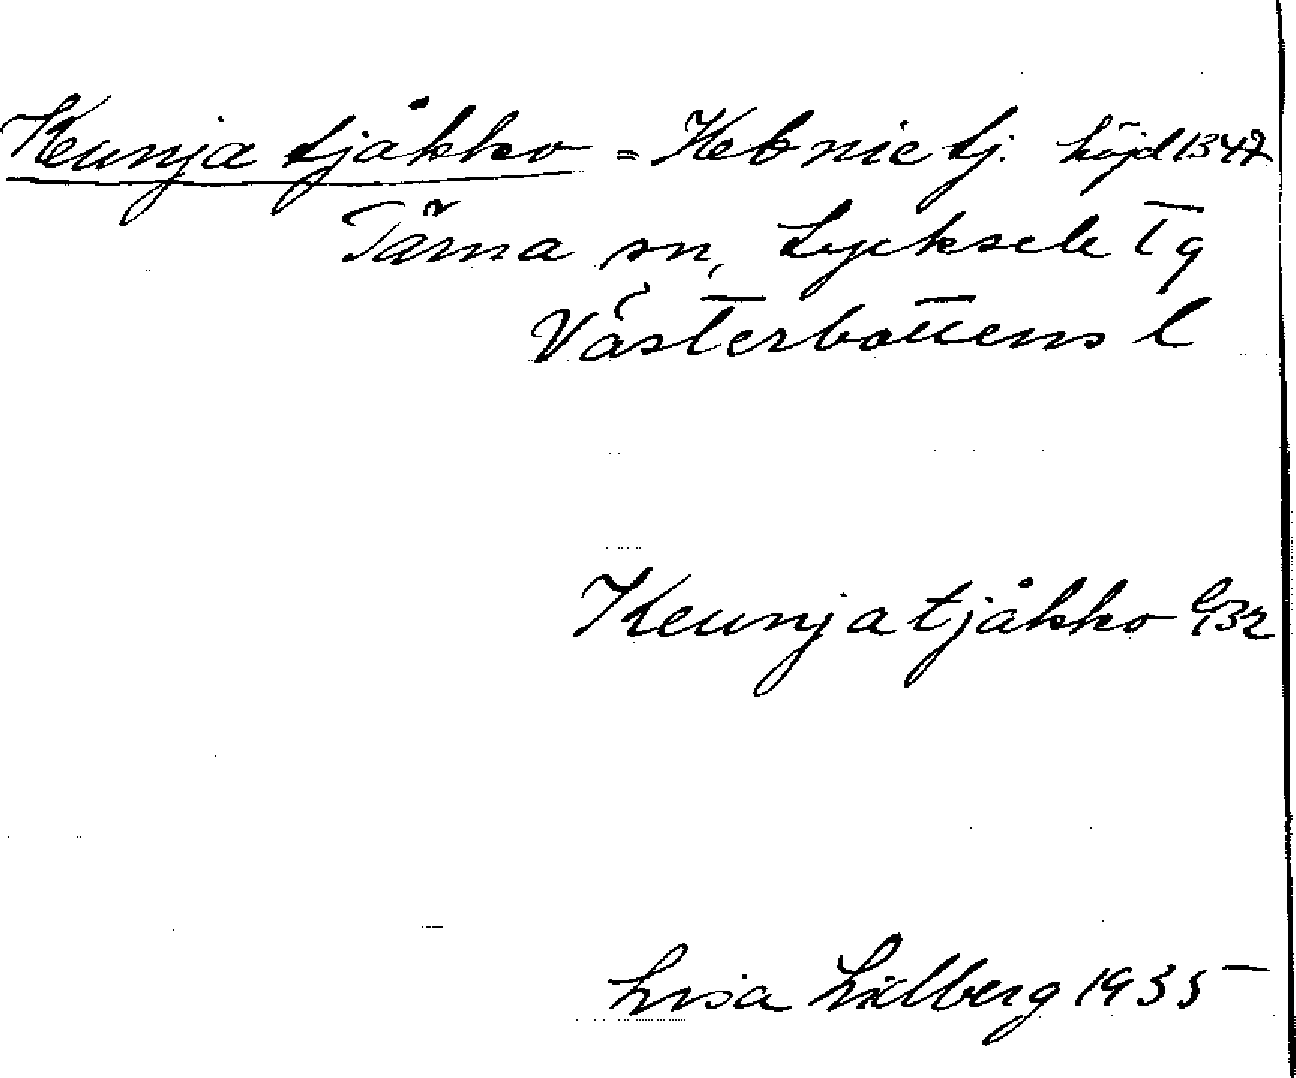 Keunja tjåkko = Kebnie tj. höjd 1347
Tärna sn, Lycksele Tg
Västerbottens l
Keunja tjåkko
Lisa Lidberg 1935